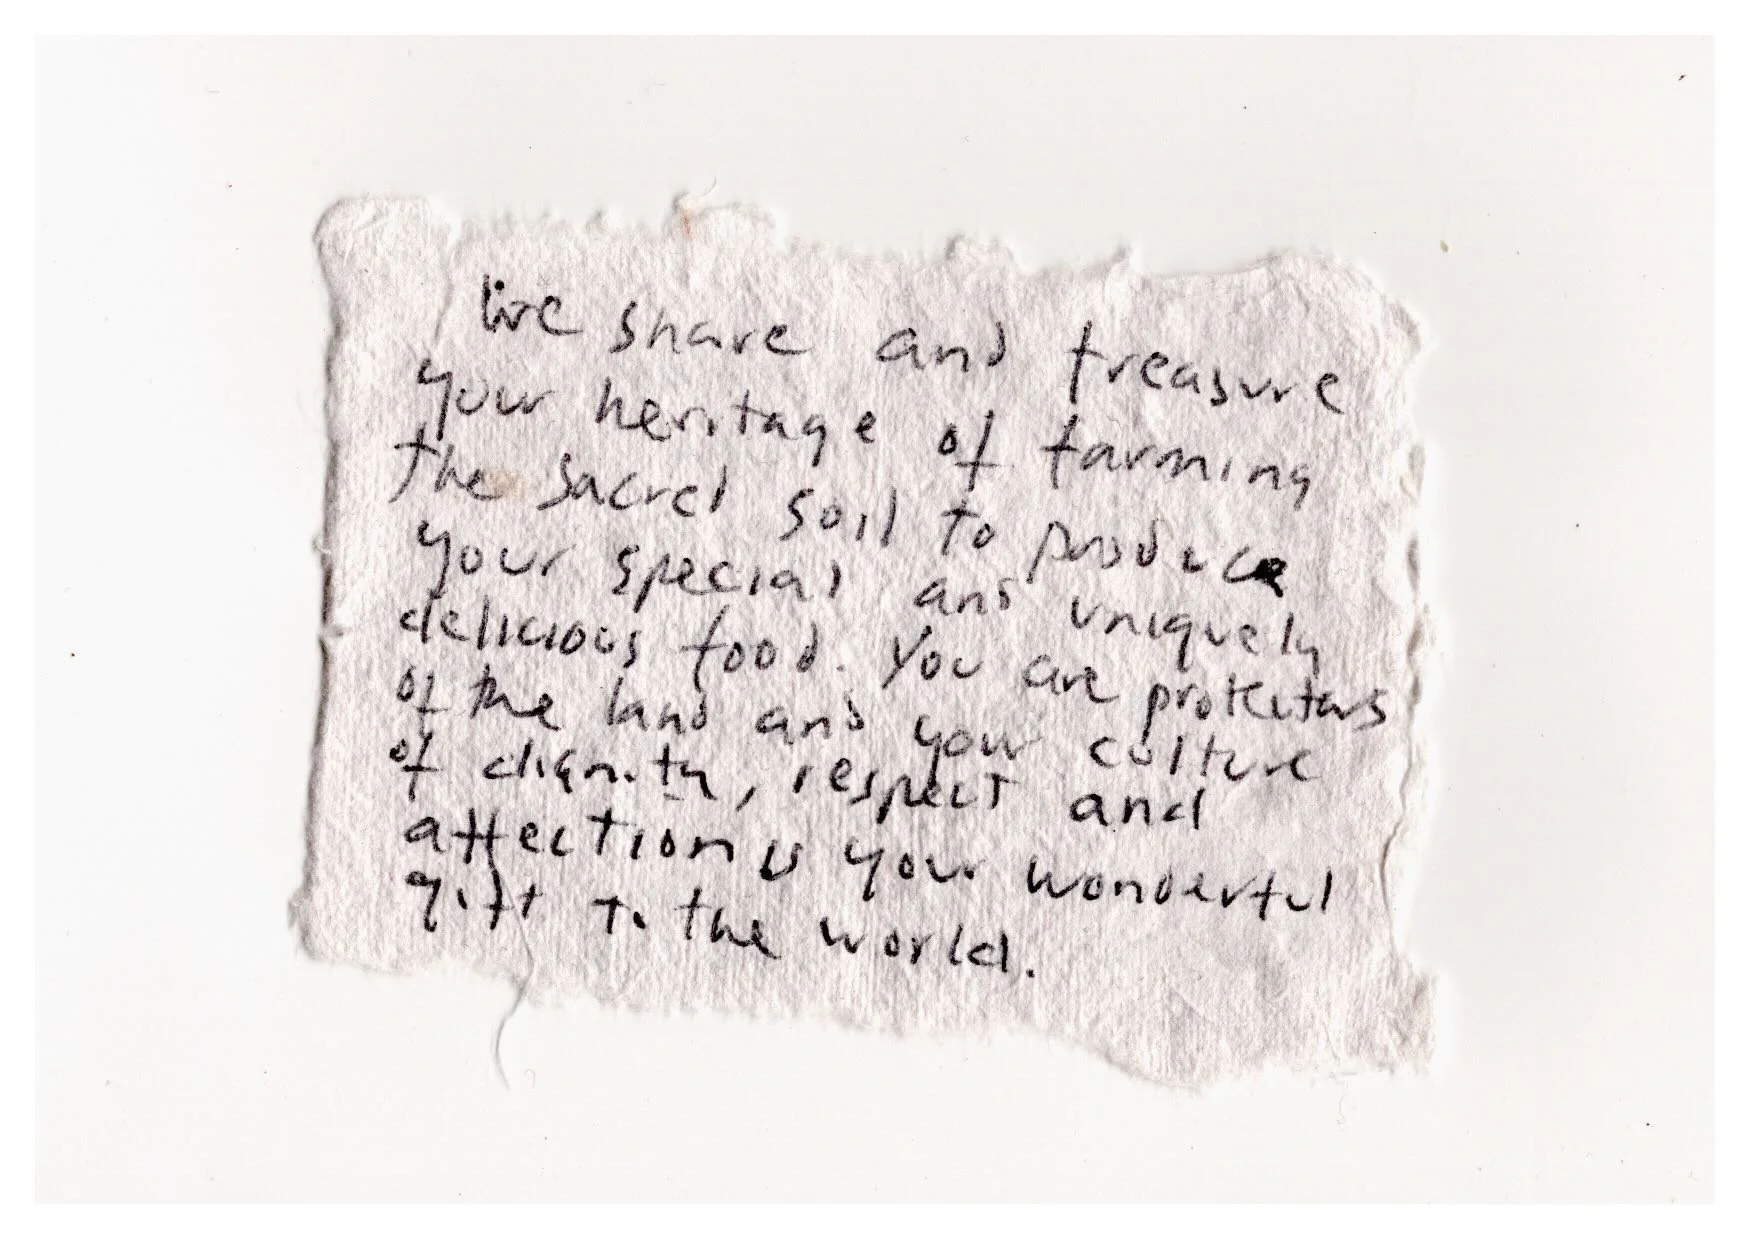 We share and treasure
your heritage of farming
the sacred soil to produce
your special and uniquely
delicious food. You are protectors
of the land and your culture
of dignity, respect and
affection is your wonderful
gift to the world.